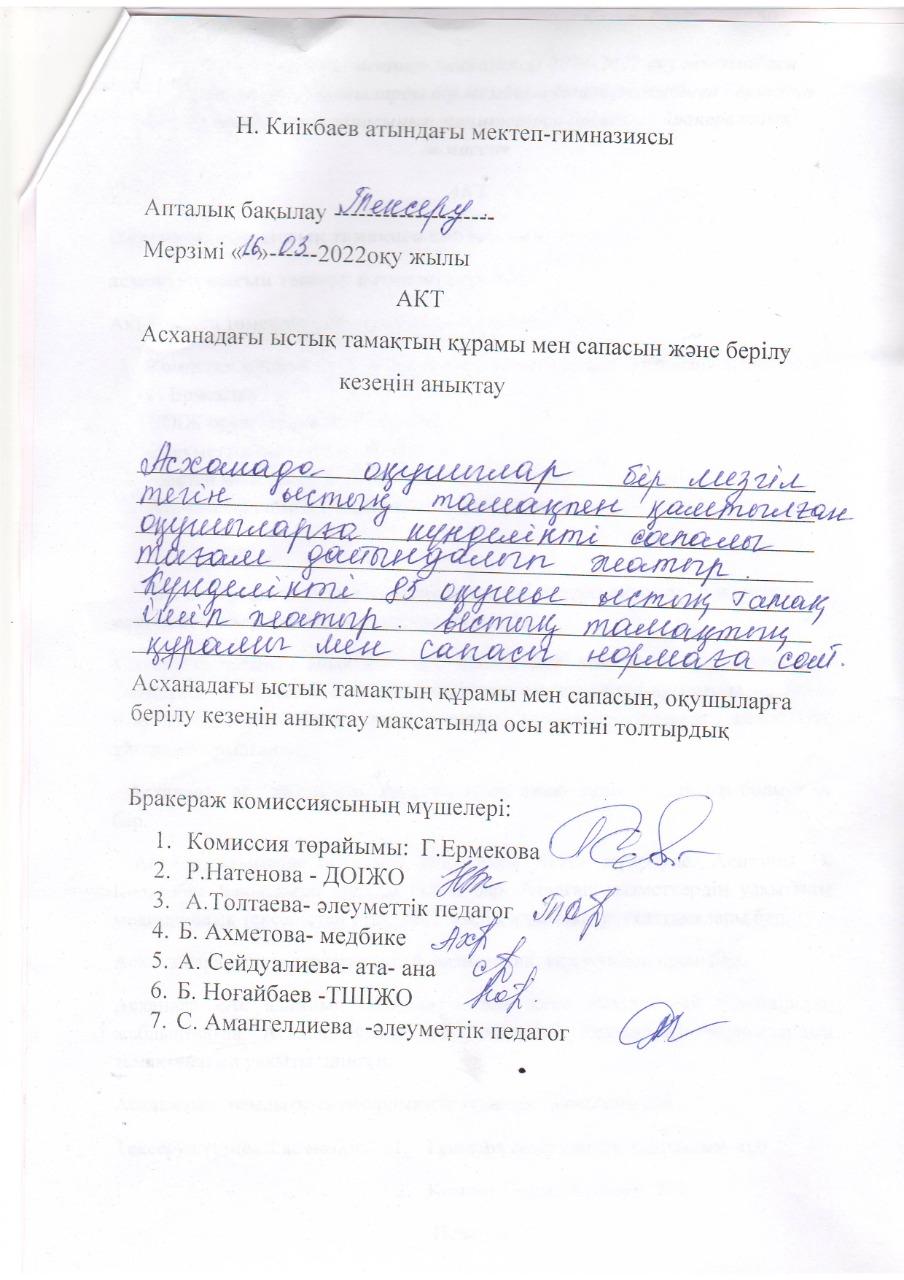 Н. Киікбаев атындағы мектеп-гимназиясы
Апталық бақылау Тексеру
Мерзімі «16»-03-2022оқу жылы
АКТ
Асханадағы ыстық тамақтың құрамы мен сапасын және берілу
кезеңін анықтау
Асханада оқушылар бір мезгіл
тегін ыстық тамақпен қамтылған
оқушыларға күнделікті сапалы
тағам дайындалып жатыр.
Күнделікті 85 оқушы ыстық тамақ
ішіп жатыр. Ыстық тамақтың
құрамы мен сапасы нормаға сай.
Асханадағы ыстық тамақтың құрамы мен сапасын, оқушыларға
берілу кезеңін анықтау мақсатында осы актіні толтырдық
Бракераж комиссиясының мүшелері:
1. Комиссия төрайымы: Г.Ермекова
2. Р.Натенова - ДОІЖО
3. А.Толтаева- әлеуметтік педагог
4. Б. Ахметова- медбике
5. А. Сейдуалиева- ата- ана
6. Б. Ноғайбаев -ТШІЖО
7. С. Амангелдиева -әлеуметтік педагог